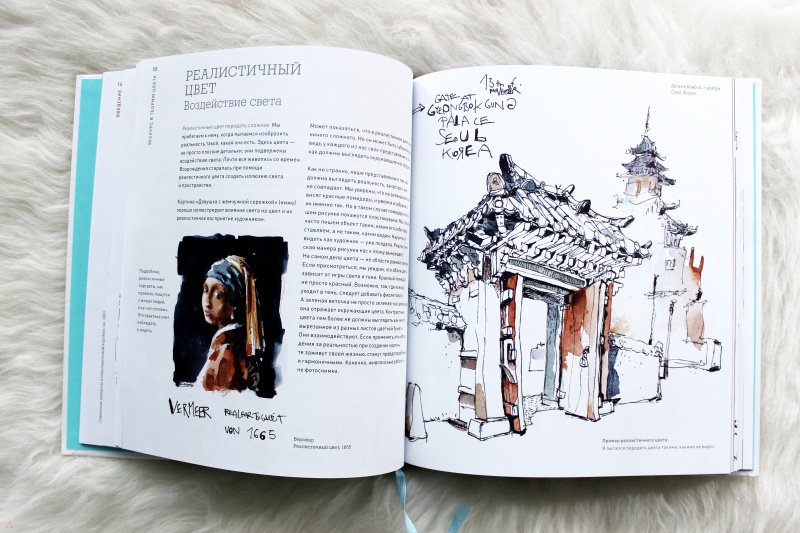 ЭКСКУРС В ТЕОРИЮ ЦВЕТА
ВВЕДЕНИЕ
РЕАЛИСТИЧНЫЙ
ЦВЕТ
Воздействие света
Реалистичный цвет передать сложнее. Мы
прибегаем к нему, когда пытаемся изобразить
реальность такой, какая она есть. Здесь цвета —
не просто плоские детальки: они подвержены
воздействию света. Почти вся живопись со времен
Возрождения старалась при помощи
реалистичного цвета создать иллюзию света
и пространства.
Картина «Девушка с жемчужной сережкой» (ниже)
хорошо иллюстрирует влияние света на цвет и их
реалистичное восприятие художником.
Подробные,
реалистичные
портреты, как
правило, пишутся
с живых людей,
а не «из головы».
Это ремесло учит
наблюдать
и видеть.
VERMEER
VON 1665
Вермеер
Реалистичный цвет, 1665
Может показаться, что в реалистичном
ничего сложного. Но он может быть
ведь у каждого из нас свое представление о том,
как должны выглядеть окружающие нас
Как ни странно, наше представление о том, как
должна выглядеть реальность, зачастую с ней
не совпадает. Мы уверены, что на зеленом
висят красные помидоры, и рисуем
их именно так. Но в таком случае помидоры на
шем рисунке покажутся пластиковыми. Мы
часто пишем объект таким, каким его представляем
а не таким, каким видим. Научиться
видеть как художник — уже полдела.
ская манера рисунка нас к этому вынуждает.
На самом деле цвета — не области
Если присмотреться, мы увидим, что
зависит от игры света и тени. Красный
не просто красный. Возможно, там, где
уходит в тень, следует добавить фиолетовый
А зеленая веточка не просто зеленая:
она отражает окружающие цвета. Контрастные
цвета тем более не должны выглядеть как
вырезанное из разных листов цветной бумаги.
Они взаимодействуют. Если применять
дения за реальностью при создании картин,
те заживут своей жизнью, станут
и гармоничными. Конечно, живописные работы —
не фотоснимки.
13th of
november
GATE AT
GYEONGBOKGUNG
PALACE
SEOUL
KOREA
Сеул, Корея
Пример реалистичного цвета.
Я пытался передать цвета такими, какими их видел